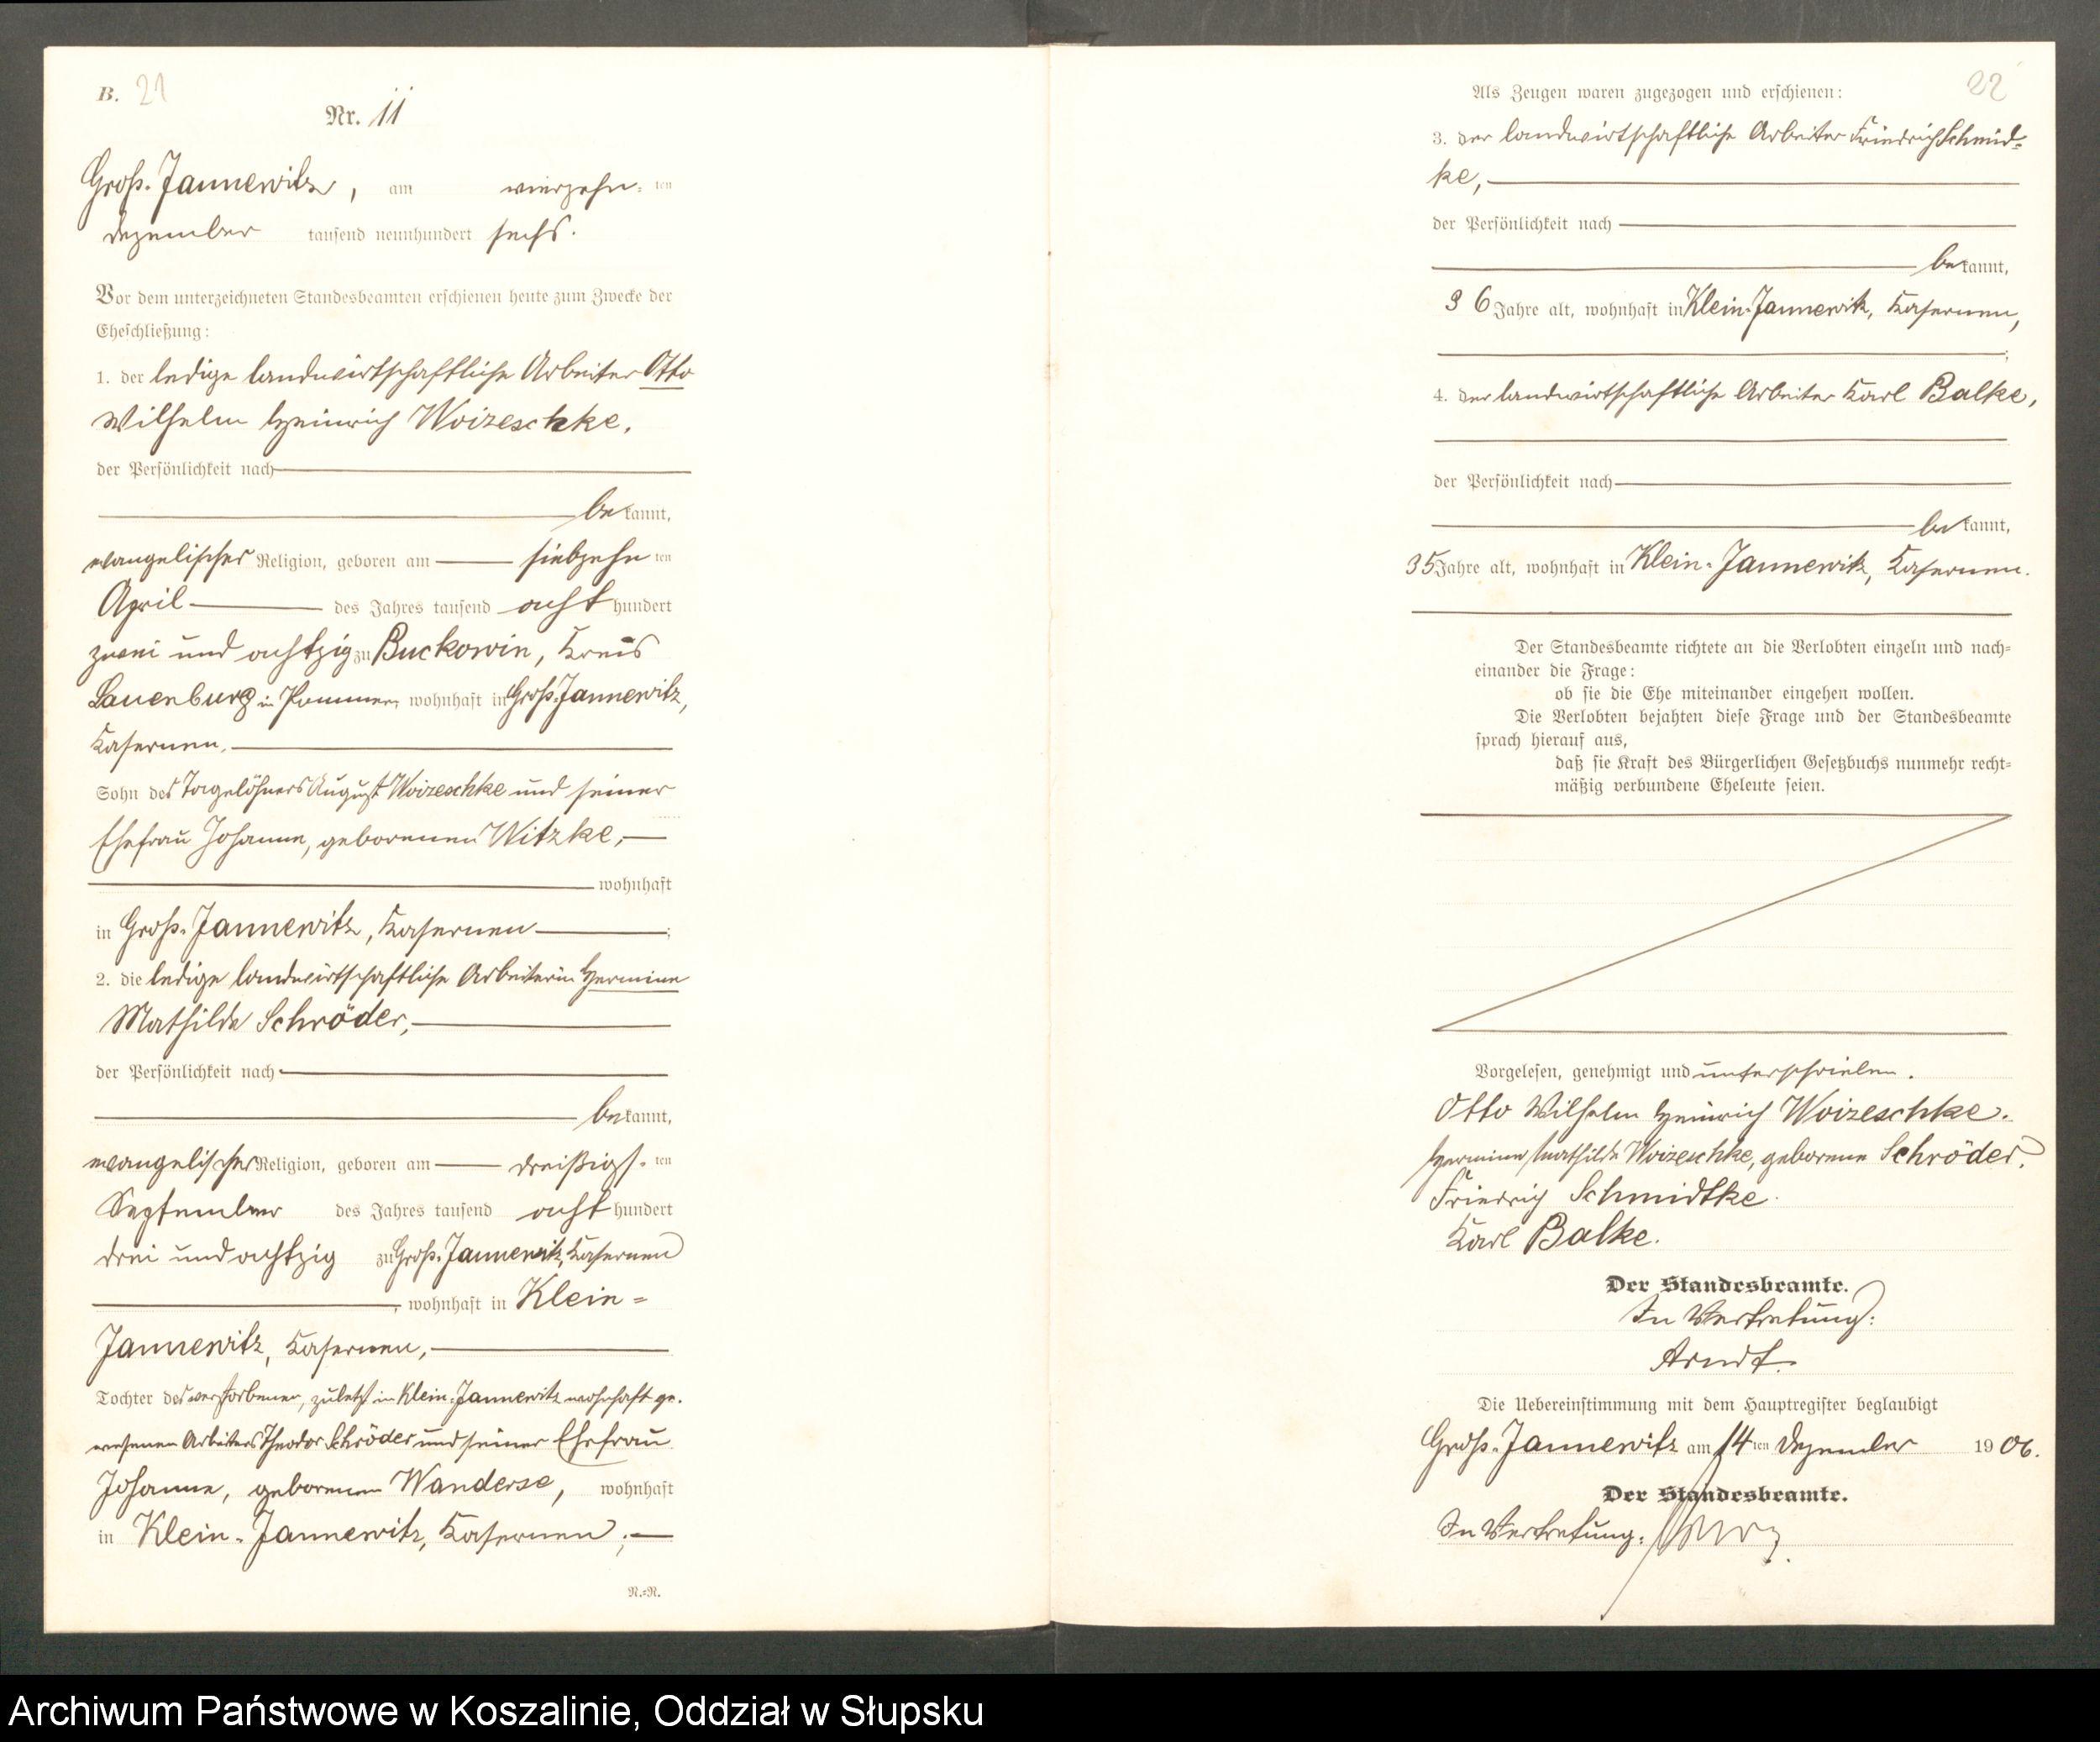 B. 21
Nr. 11
Groß-Jannewitz, am vierzehn-ten
Dezember tausend neunhundert sechs.
Vor dem unterzeichneten Standesbeamten erschienen heute zum Zwecke der
Eheschließung:
1. der ledige landwirtschaftliche Arbeiter Otto
Wilhelm Heinrich Woizeschke,
der Persönlichkeit nach
bekannt,
evangelischer Religion, geboren am siebzehnten
April des Jahres tausend achthundert
zwei und achtzig zu Buckowin, Kreis
Lauenburg in Pommern, wohnhaft in Groß-Jannewitz,
Kasernen,
Sohn des Tagelöhners August Woizeschke und seiner
Ehefrau Johanne, geborenen Witzke,
wohnhaft
in Groß-Jannewitz, Kasernen;
2. die ledige landwirtschaftliche Arbeiterin Hermine
Mathilde Schröder,
der Persönlichkeit nach
bekannt,
evangelischer Religion, geboren am dreißigs-ten
September des Jahres tausend achthundert
drei und achtzig zu Groß-Jannewitz, Kasernen
, wohnhaft in Klein-
Jannewitz, Kasernen,
Tochter des verstorbenen, zuletzt in Klein-Jannewitz wohnhaft ge-
wesenen Arbeiters Theodor Schröder und seiner Ehefrau
Johanne, geborenen Wanderse, wohnhaft
in Klein-Jannewitz, Kasernen;
N.=R.
22
Als Zeugen waren zugezogen und erschienen:
3. der landwirtschaftliche Arbeiter Friedrich Schmid-
ke,
der Persönlichkeit nach
bekannt,
36 Jahre alt, wohnhaft in Klein-Jannewitz, Kasernen,
;
4. der landwirtschaftliche Arbeiter Karl Balke,
der Persönlichkeit nach
bekannt,
35 Jahre alt, wohnhaft in Klein-Jannewitz, Kasernen.
Der Standesbeamte richtete an die Verlobten einzeln und nach=
einander die Frage:
ob sie die Ehe miteinander eingehen wollen.
Die Verlobten bejahten diese Frage und der Standesbeamte
sprach hierauf aus,
daß sie Kraft des Bürgerlichen Gesetzbuchs nunmehr recht=
mäßig verbundene Eheleute seien.
Vorgelesen, genehmigt und unterschrieben.
Otto Wilhelm Heinrich Woizeschke.
Hermine Mathilde Woizeschke, geborene Schröder.
Friedrich Schmidtke.
Karl Balke.
Der Standesbeamte.
In Vertretung:
Arndt.
Die Uebereinstimmung mit dem Hauptregister beglaubigt
Groß-Jannewitz am 14ten Dezember 1906.
Der Standesbeamte.
In Vertretung:
Archiwum Państwowe w Koszalinie, Oddział w Słupsku